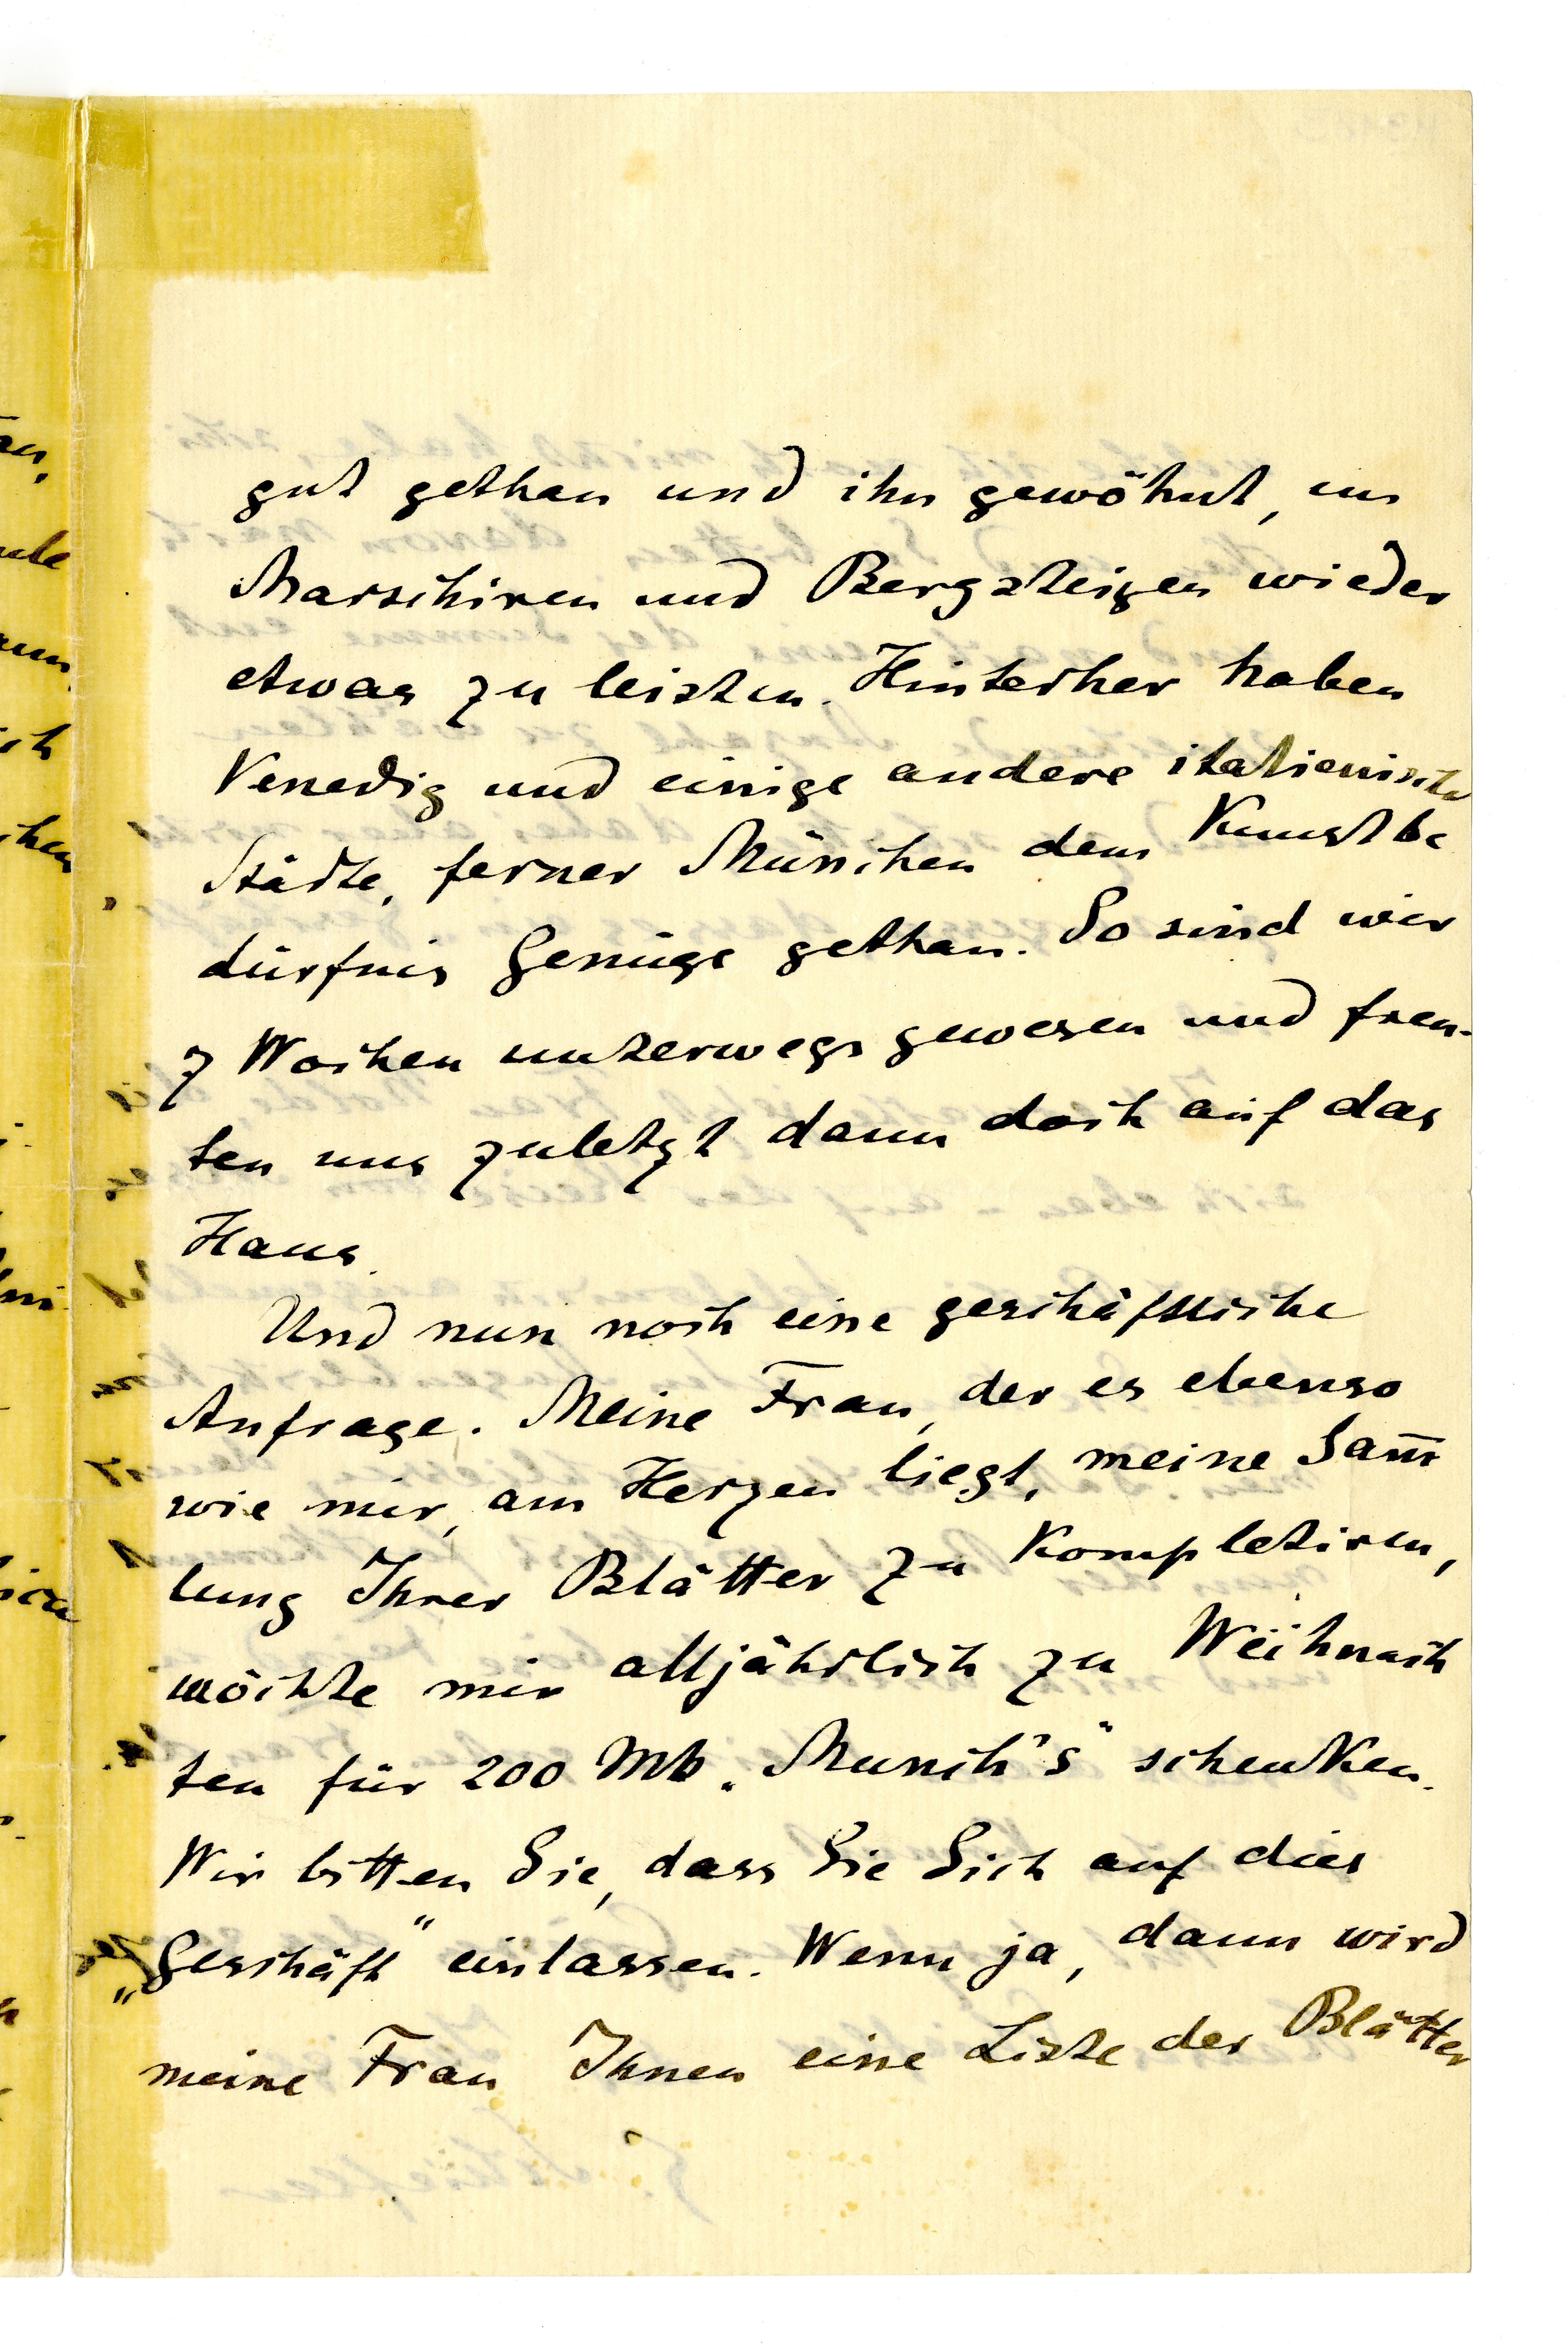 gut gethan und ihn gewöhnt, im
Marschiren und Bergsteigen wieder
etwas zu leisten. Hinterher haben
Venedig und einige andere italienische
Städte, ferner München dem Kunstbe
dürfnis Genüge gethan. So sind wir
7 Wochen unterwegs gewesen und freu-
ten uns zuletzt dann doch auf das
Haus.
Und nun noch eine geschäftliche
Anfrage. Meine Frau, der es ebenso
wie mir, am Herzen liegt, meine Sam̄
lung Ihrer Blätter zu kompletiren,
möchte mir alljährlich zu Weihnach
ten für 200 Mk. „Munch's“ schenken.
Wir bitten Sie, dass Sie Sich auf dies
„Geschäft“ einlassen. Wenn ja, dann wird
meine Frau Ihnen eine Liste der Blätter